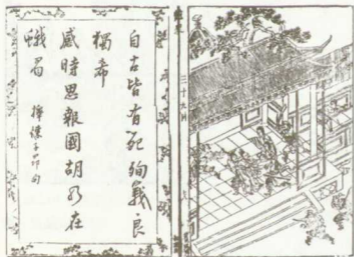 自古皆有死殉義良
獨希
感時思報國胡為在
蛾眉
擇陳子昂句